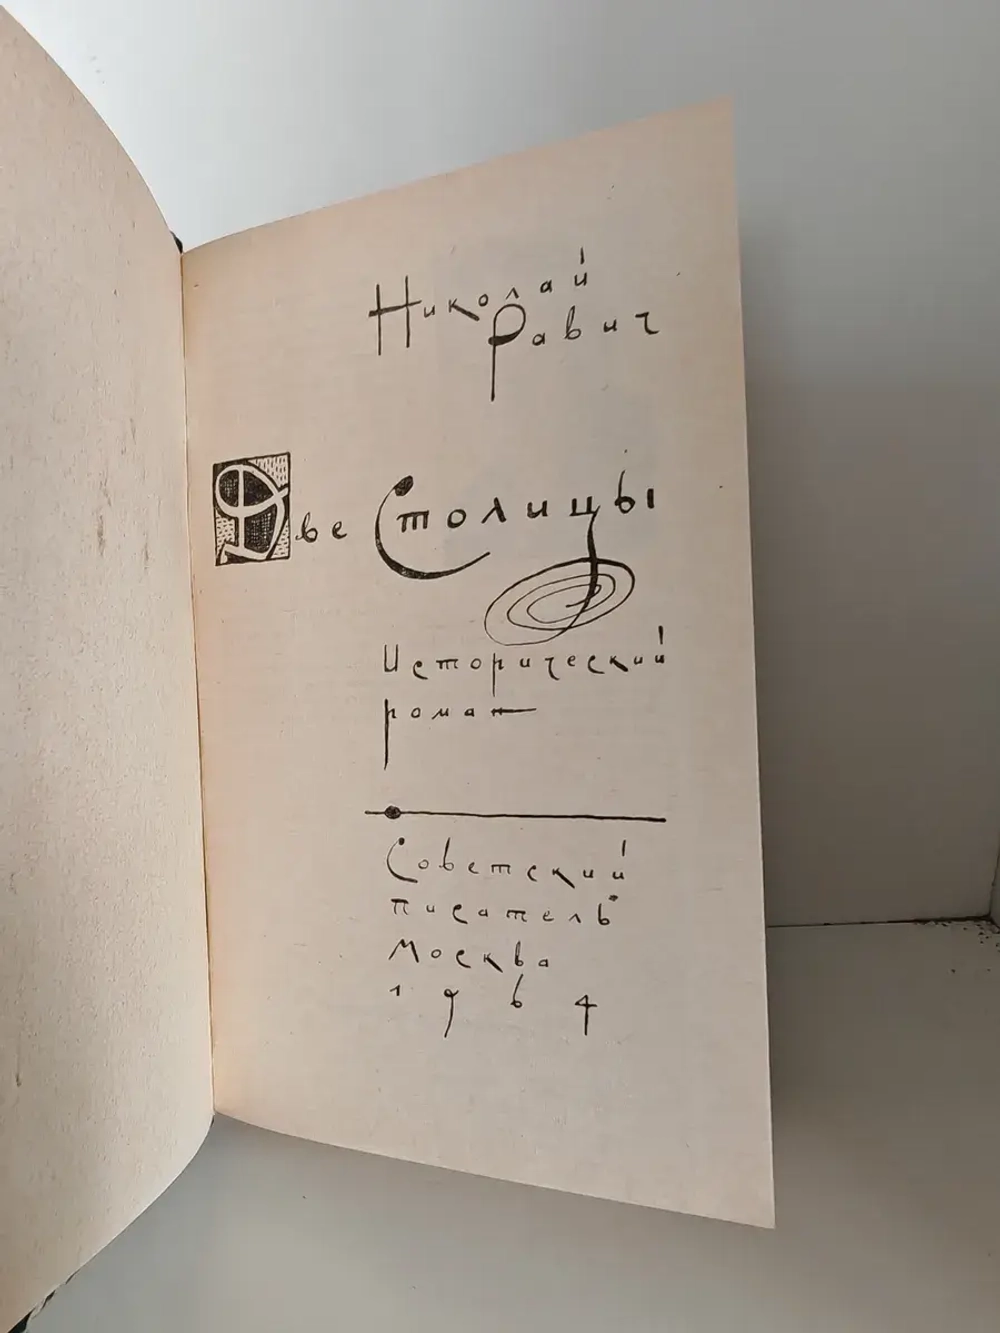 Николай
Равич
Две Столицы
Исторический
роман
Советский
писатель
Москва
1964